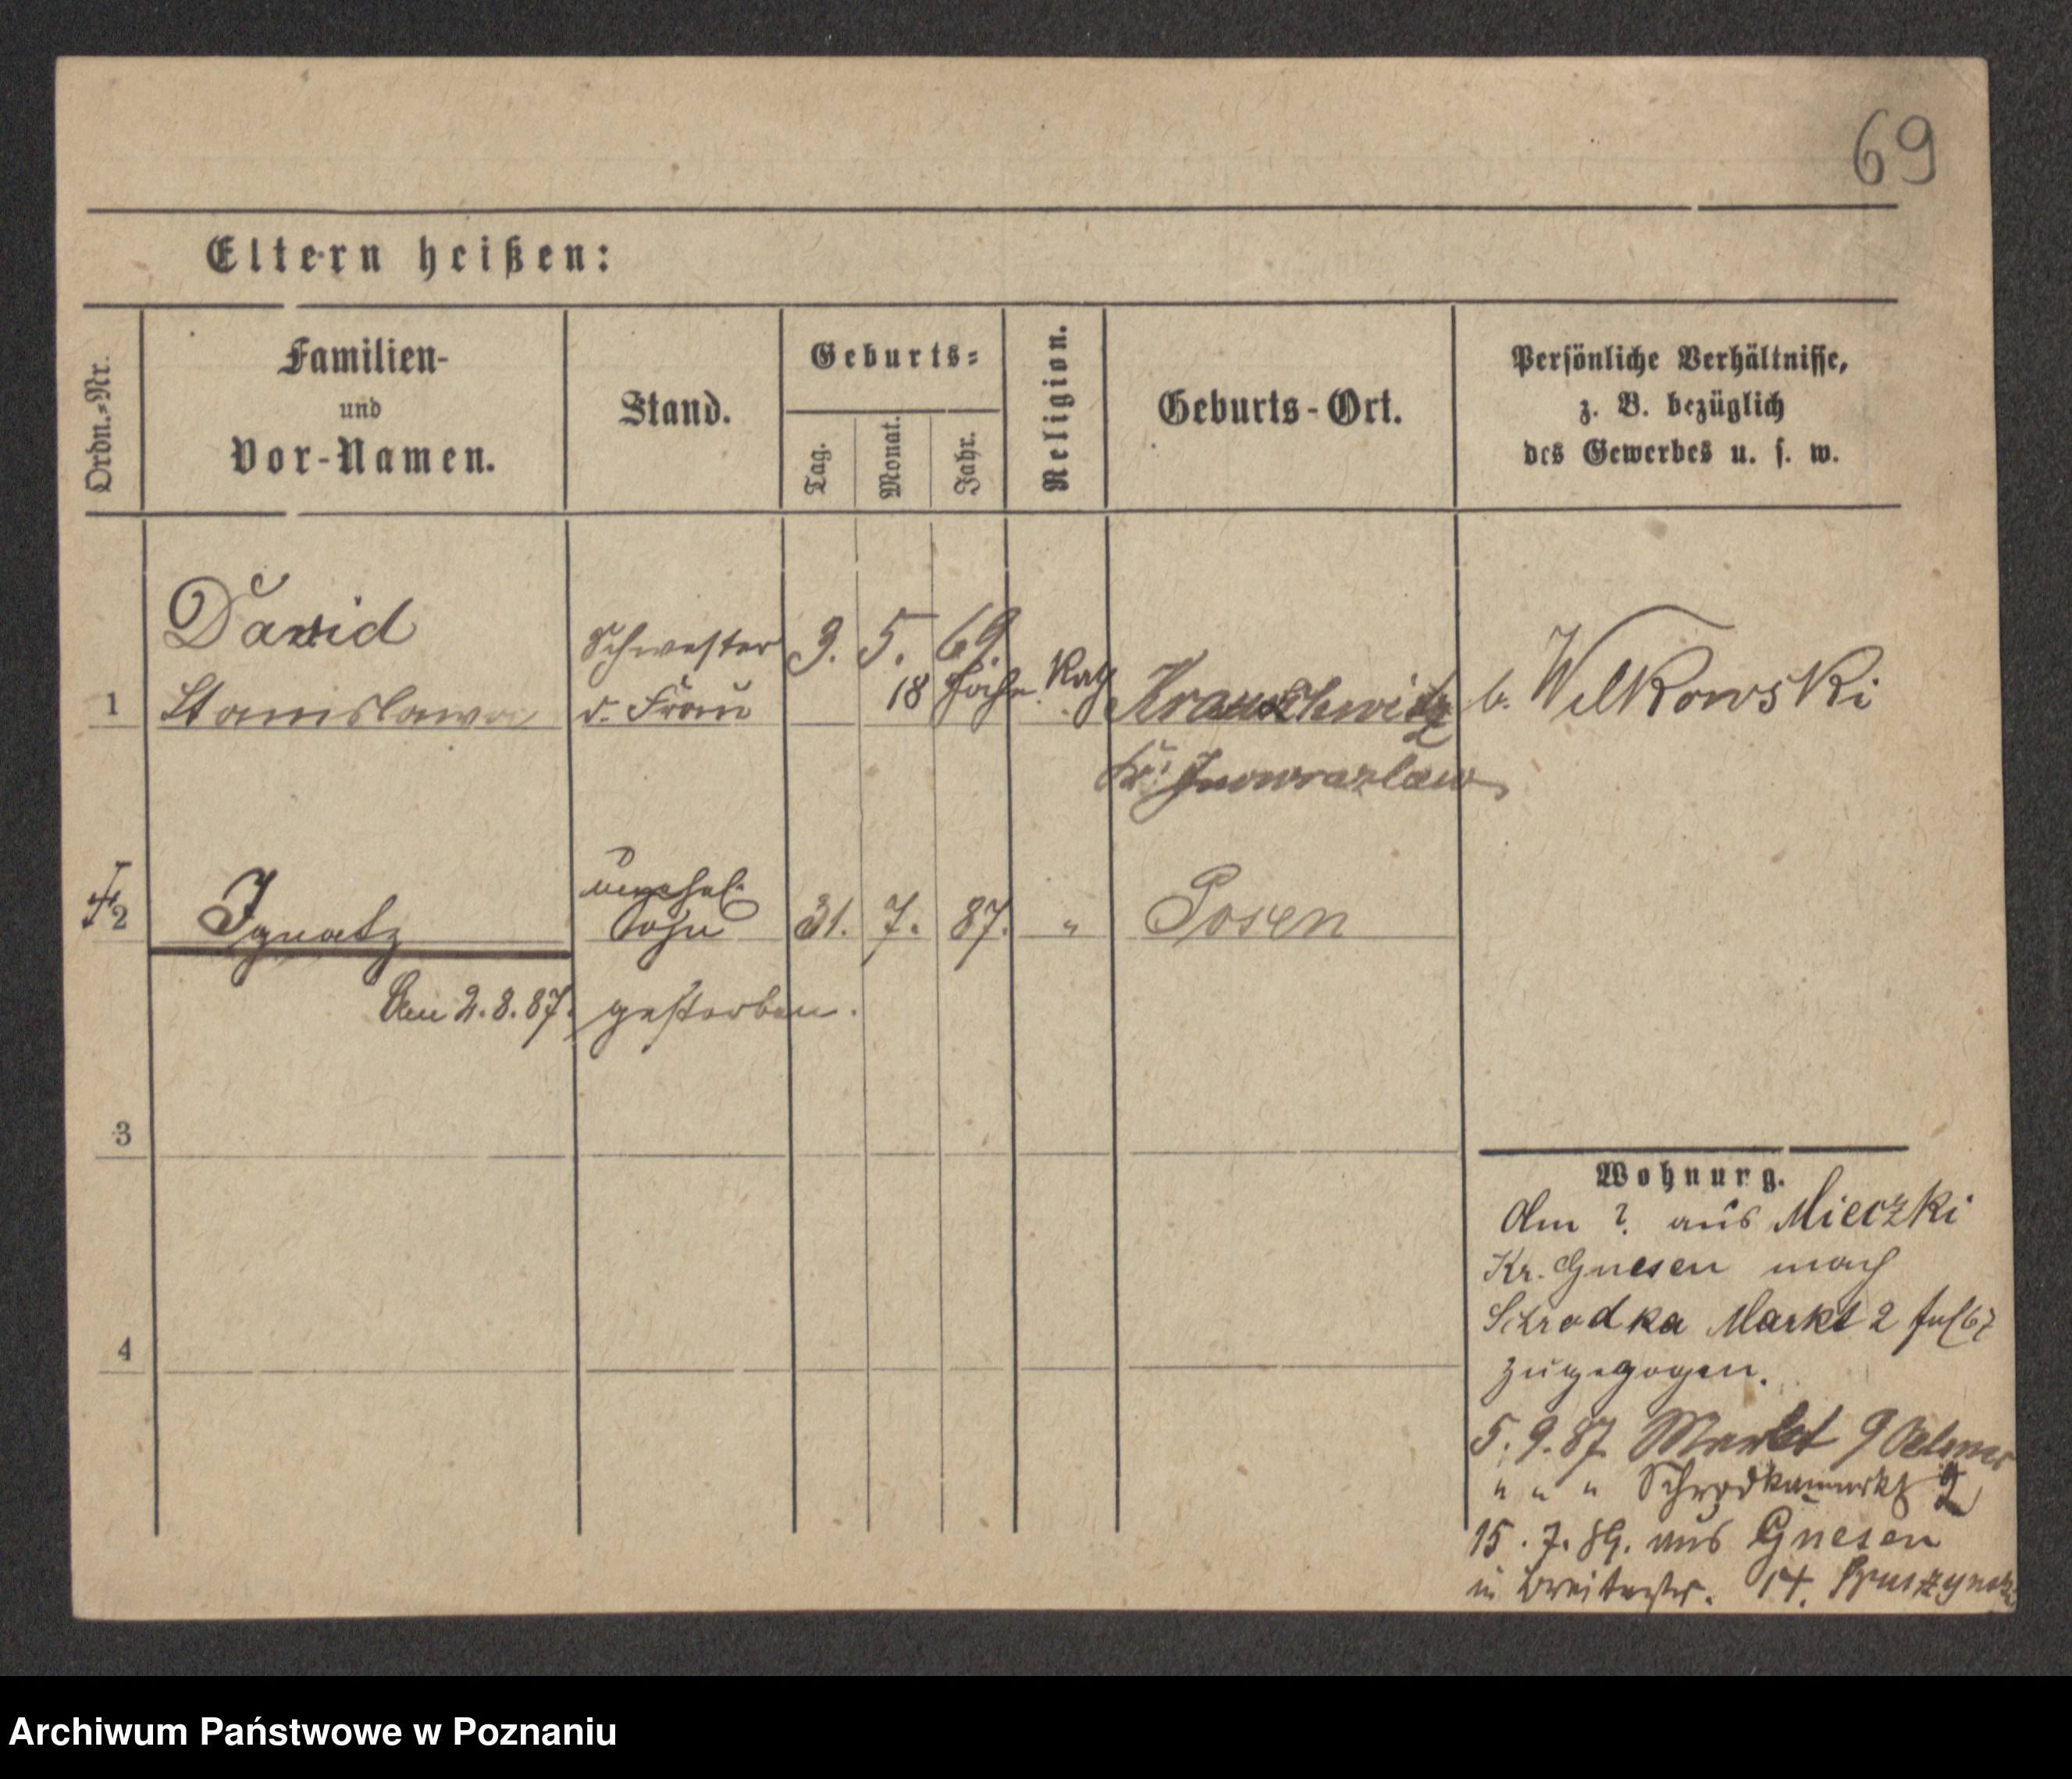 69
Eltern heißen:
Ordn.-Nr.
Familien-
und
Vor-Namen.
Stand.
Geburts-
Tag.
Monat.
Jahr.
Religion.
Geburts-Ort.
Persönliche Verhältnisse,
z. B. bezüglich
des Gewerbes u. s. w.
David
Schwester 3. 5. 69.
1 Stanislawa d. Frau 18 Jahr. Kath. b. Wilkowski
Kr. Inowrazlaw
unehel.
2 Ignatz Sohn 31. 7. 87. " Posen
Am 2. 8. 87. gestorben.
3
4
Wohnurg.
Am ? aus Mieczki
Kr. Gnesen nach
Schrodka Markt 2
zugezogen.
5. 9. 87. Markt 9
" " " Schrodkamarkt 2
15. 7. 89. aus Gnesen
in Breitestr. 14.
Archiwum Państwowe w Poznaniu